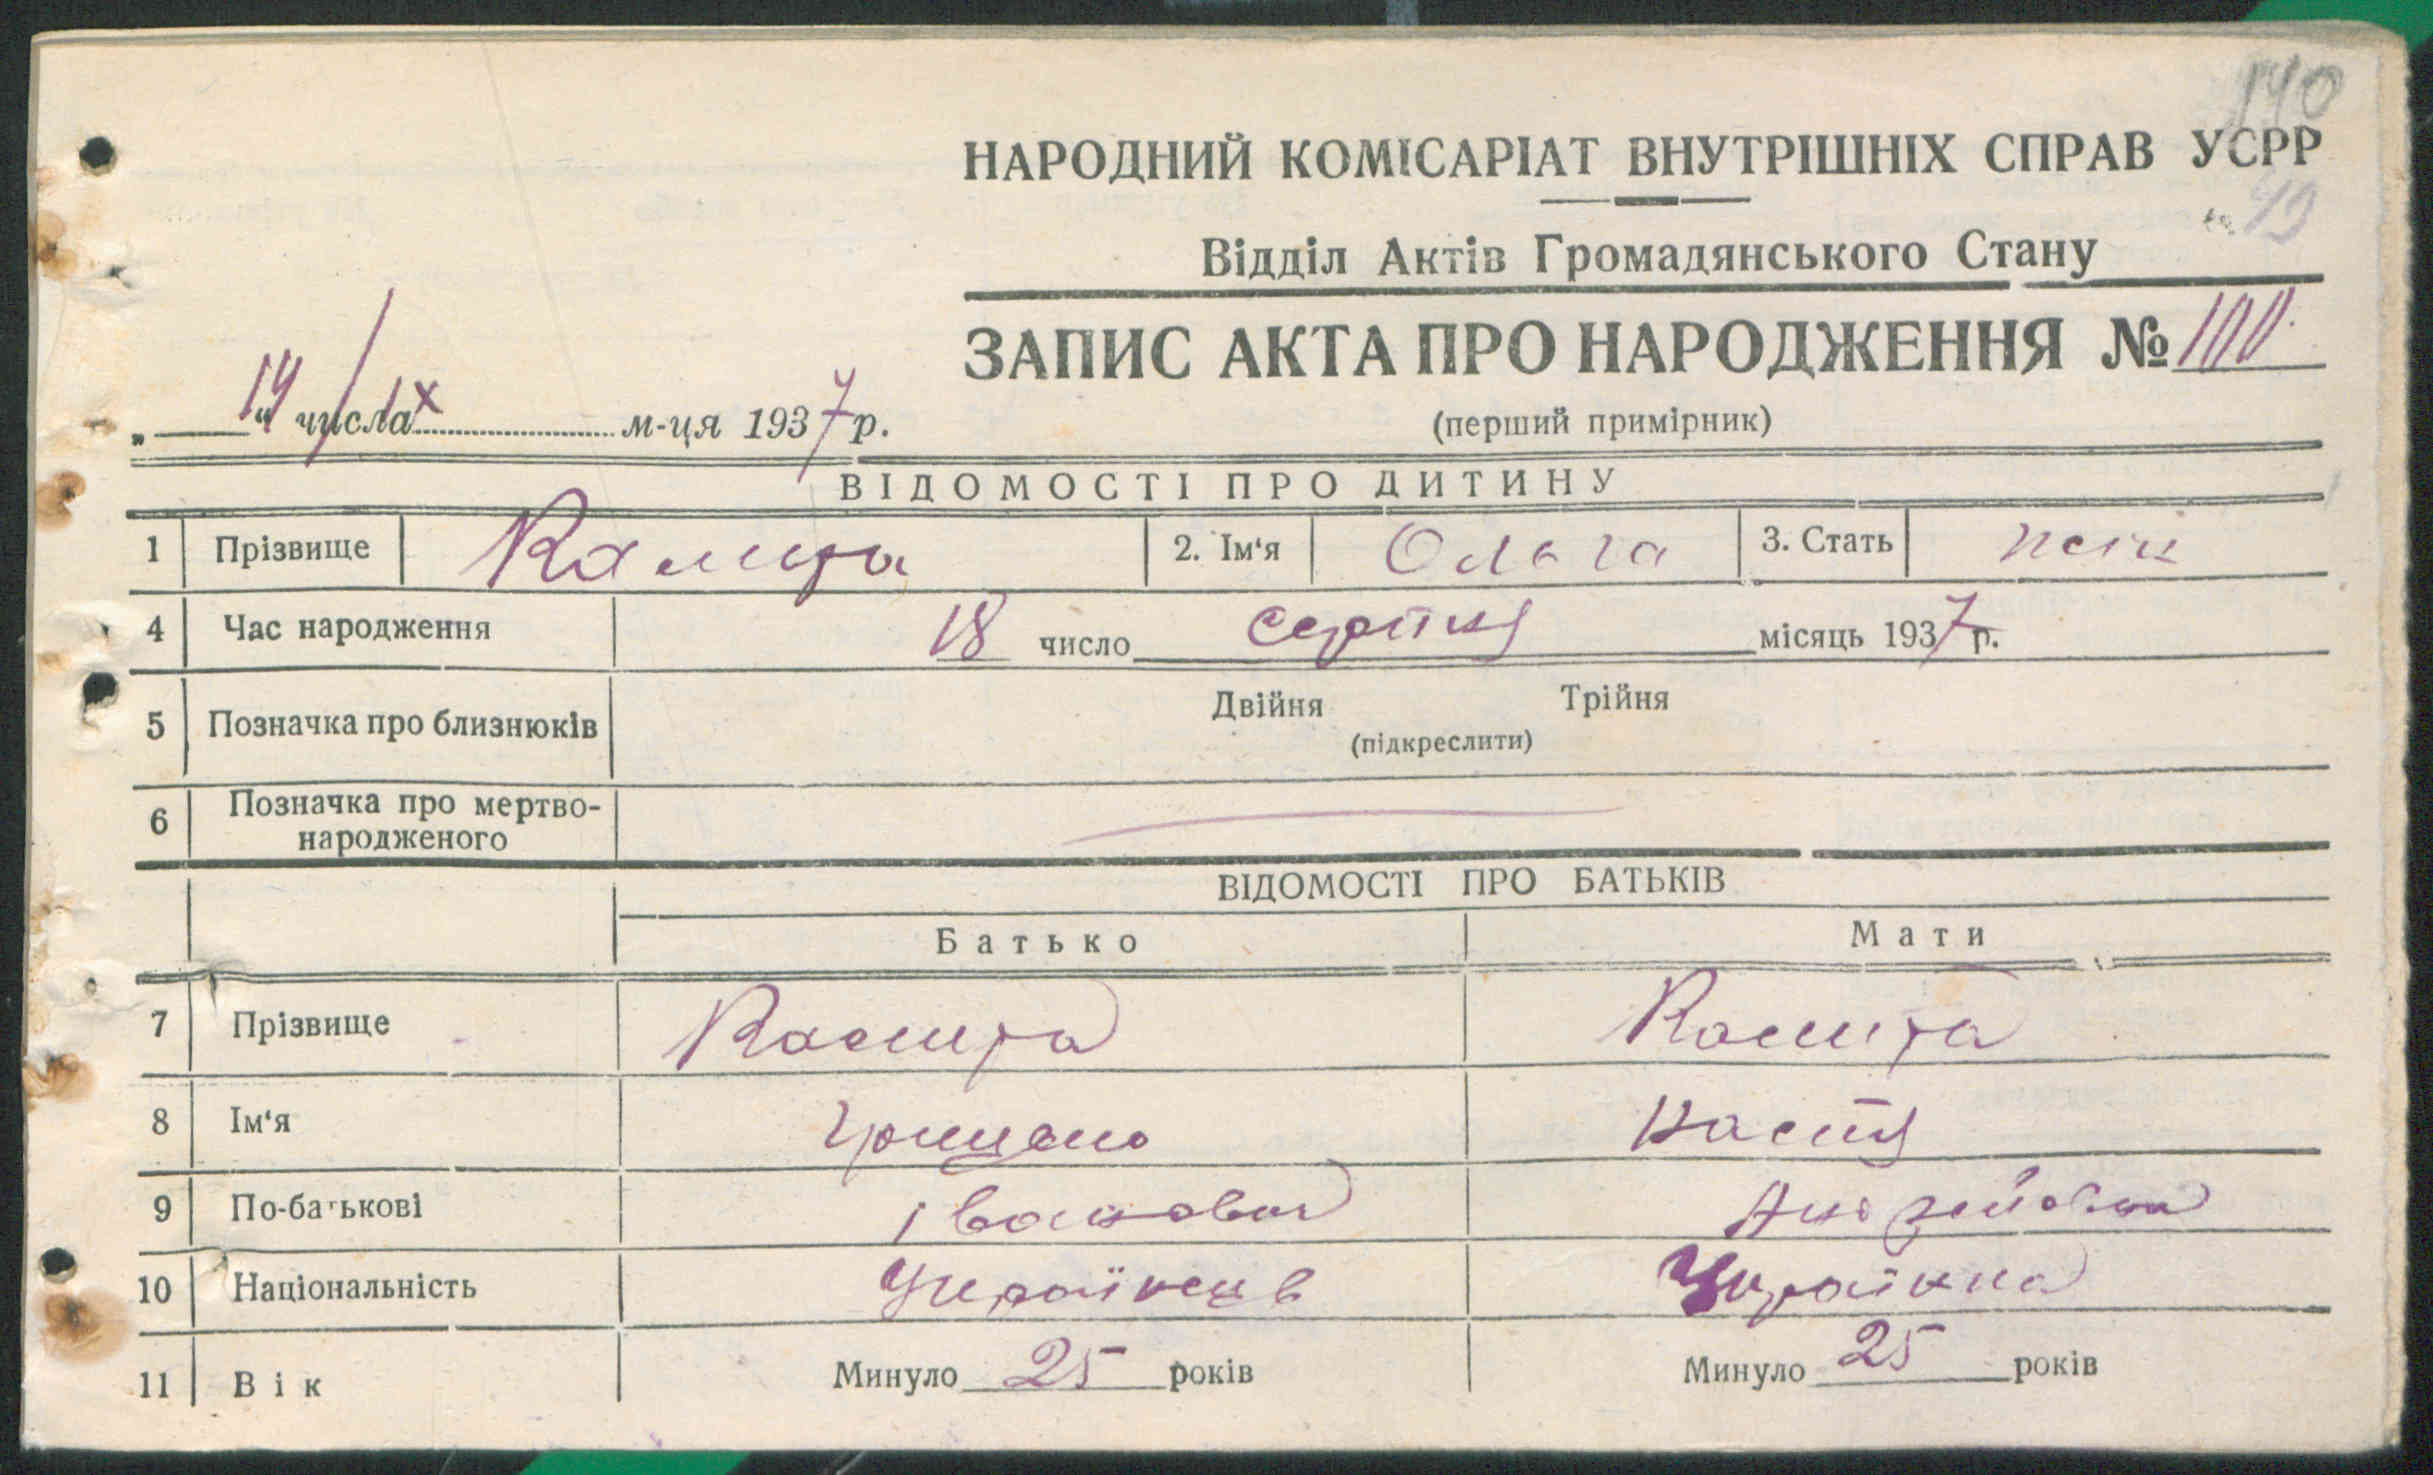 140
НАРОДНИЙ КОМІСАРІАТ ВНУТРІШНІХ СПРАВ УСРР
49
Відділ Актів Громадянського Стану
ЗАПИС АКТА ПРО НАРОДЖЕННЯ № 100
„ 14 “ числа X м-ця 1937 р.
(перший примірник)
ВІДОМОСТІ ПРО ДИТИНУ
1 Прізвище Калита 2. Ім‘я Ольга 3. Стать жін
4 Час народження 18 число серпня місяць 1937 р.
5 Позначка про близнюків Двійня Трійня
(підкреслити)
6 Позначка про мертво-
народженого
ВІДОМОСТІ ПРО БАТЬКІВ
Батько Мати
7 Прізвище Калита Калита
8 Ім‘я Грицько Настя
9 По-батькові Іванович Андрійовна
10 Національність Українець Українка
11 Вік Минуло 25 років Минуло 25 років